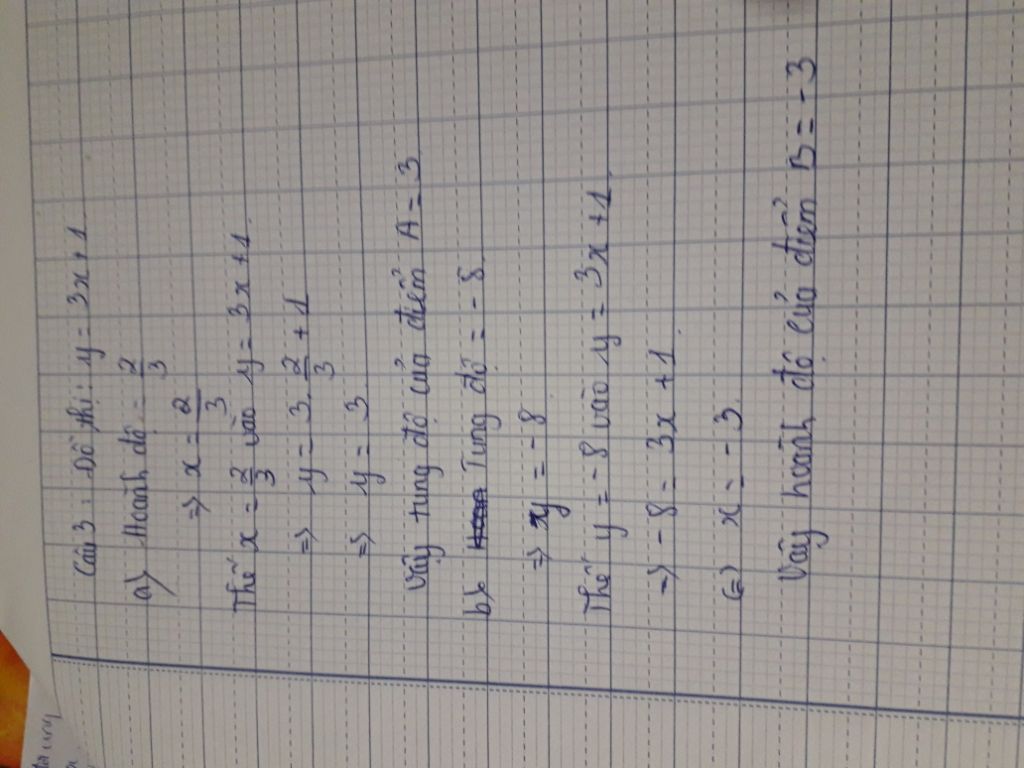 Câu 3: Đồ thị: y = 3x + 1
a) Hoành độ = 2/3
=> x = 2/3
Thế x = 2/3 vào y = 3x + 1
=> y = 3. 2/3 + 1
=> y = 3
Vậy tung độ của điểm A = 3
b) Tung độ = -8
=> y = -8
Thế y = -8 vào y = 3x + 1
=> -8 = 3x + 1
(=) x = -3
Vậy hoành độ của điểm B = -3